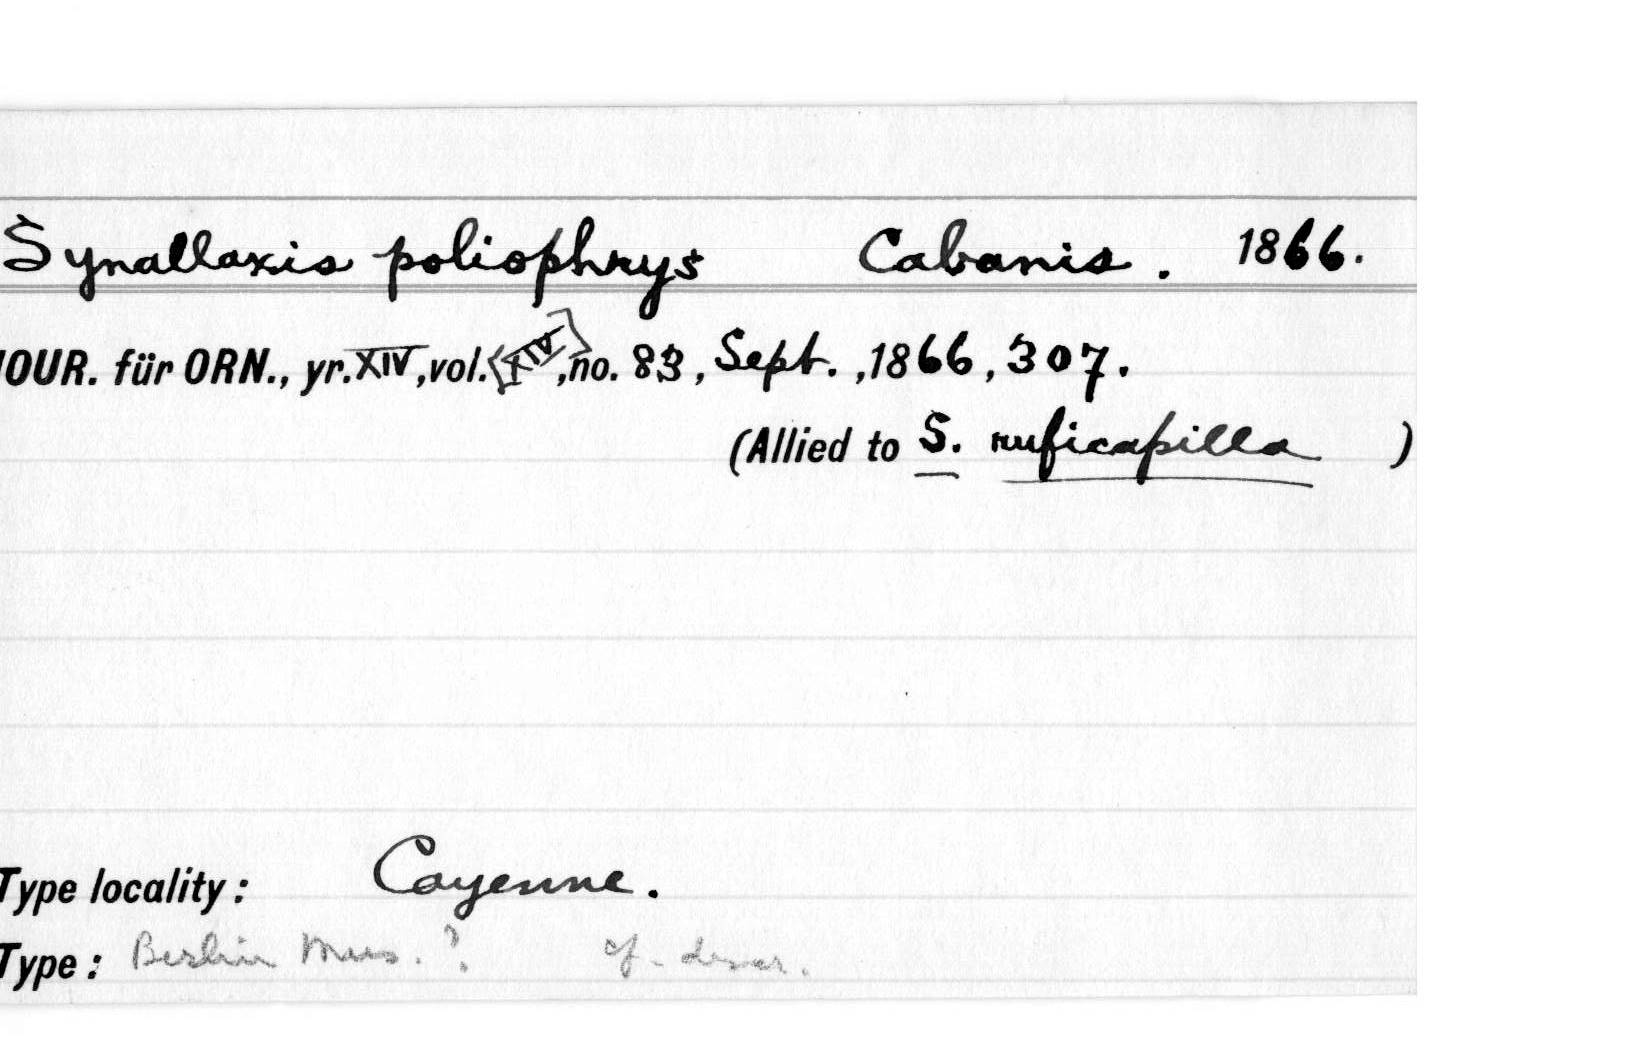 Synallaxis poliophrys Cabanis. 1866.
JOUR. für ORN., yr. XIV, vol. [XIV], no. 83, Sept., 1866, 307.
(Allied to S. ruficapilla )
Type locality: Cayenne.
Type: Berlin Mus.? cf. descr.